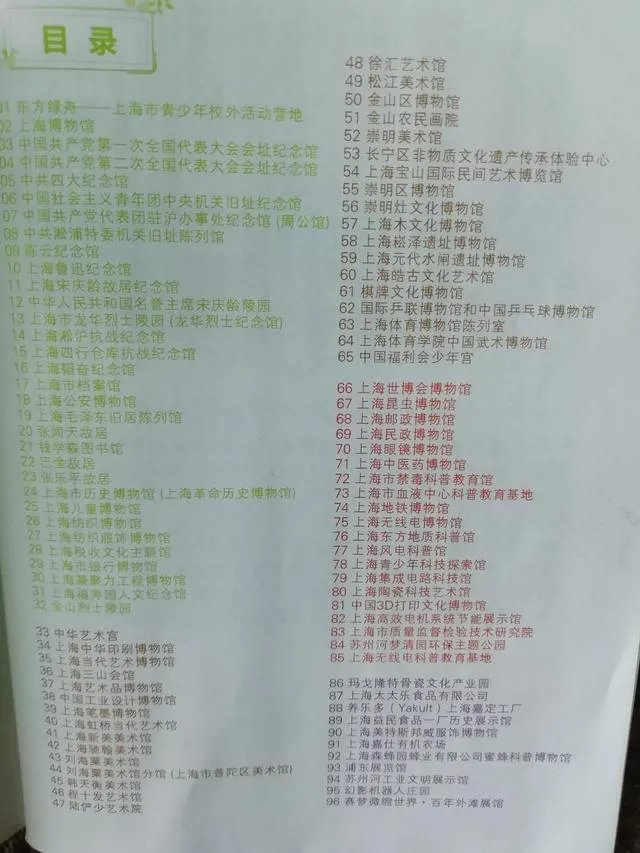 目录
01 东方绿舟——上海市青少年校外活动营地
02 上海博物馆
03 中国共产党第一次全国代表大会会址纪念馆
04 中国共产党第二次全国代表大会会址纪念馆
05 中共四大纪念馆
06 中国社会主义青年团中央机关旧址纪念馆
07 中国共产党代表团驻沪办事处纪念馆 (周公馆)
08 中共淞浦特委机关旧址陈列馆
09 陈云纪念馆
10 上海鲁迅纪念馆
11 上海宋庆龄故居纪念馆
12 中华人民共和国名誉主席宋庆龄陵园
13 上海市龙华烈士陵园 (龙华烈士纪念馆)
14 上海淞沪抗战纪念馆
15 上海四行仓库抗战纪念馆
16 上海韬奋纪念馆
17 上海市档案馆
18 上海公安博物馆
19 上海毛泽东旧居陈列馆
20 张闻天故居
21 钱学森图书馆
22 巴金故居
23 张乐平故居
24 上海市历史博物馆 (上海革命历史博物馆)
25 上海儿童博物馆
26 上海纺织博物馆
27 上海纺织服饰博物馆
28 上海税收文化主题馆
29 上海市银行博物馆
30 上海凝聚力工程博物馆
31 上海福寿园人文纪念馆
32 金山烈士陵园
33 中华艺术宫
34 上海中华印刷博物馆
35 上海当代艺术博物馆
36 上海三山会馆
37 上海艺术品博物馆
38 中国工业设计博物馆
39 上海笔墨博物馆
40 上海虹桥当代艺术馆
41 上海新美美术馆
42 上海驰翰美术馆
43 刘海粟美术馆
44 刘海粟美术馆分馆 (上海市普陀区美术馆)
45 韩天衡美术馆
46 程十发艺术馆
47 陆俨少艺术院
48 徐汇艺术馆
49 松江美术馆
50 金山区博物馆
51 金山农民画院
52 崇明美术馆
53 长宁区非物质文化遗产传承体验中心
54 上海宝山国际民间艺术博览馆
55 崇明区博物馆
56 崇明灶文化博物馆
57 上海木文化博物馆
58 上海崧泽遗址博物馆
59 上海元代水闸遗址博物馆
60 上海皓古文化艺术馆
61 棋牌文化博物馆
62 国际乒联博物馆和中国乒乓球博物馆
63 上海体育博物馆陈列室
64 上海体育学院中国武术博物馆
65 中国福利会少年宫
66 上海世博会博物馆
67 上海昆虫博物馆
68 上海邮政博物馆
69 上海民政博物馆
70 上海眼镜博物馆
71 上海中医药博物馆
72 上海市禁毒科普教育馆
73 上海市血液中心科普教育基地
74 上海地铁博物馆
75 上海无线电博物馆
76 上海东方地质科普馆
77 上海风电科普馆
78 上海青少年科技探索馆
79 上海集成电路科技馆
80 上海陶瓷科技艺术馆
81 中国3D打印文化博物馆
82 上海高效电机系统节能展示馆
83 上海市质量监督检验技术研究院
84 苏州河梦清园环保主题公园
85 上海无线电科普教育基地
86 玛戈隆特骨瓷文化产业园
87 上海太太乐食品有限公司
88 养乐多 (Yakult) 上海嘉定工厂
89 上海益民食品一厂历史展示馆
90 上海美特斯邦威服饰博物馆
91 上海嘉仕有机农场
92 上海森蜂园蜂业有限公司蜜蜂科普博物馆
93 浦东展览馆
94 苏州河工业文明展示馆
95 幻影机器人庄园
96 赛梦微缩世界·百年外滩展馆